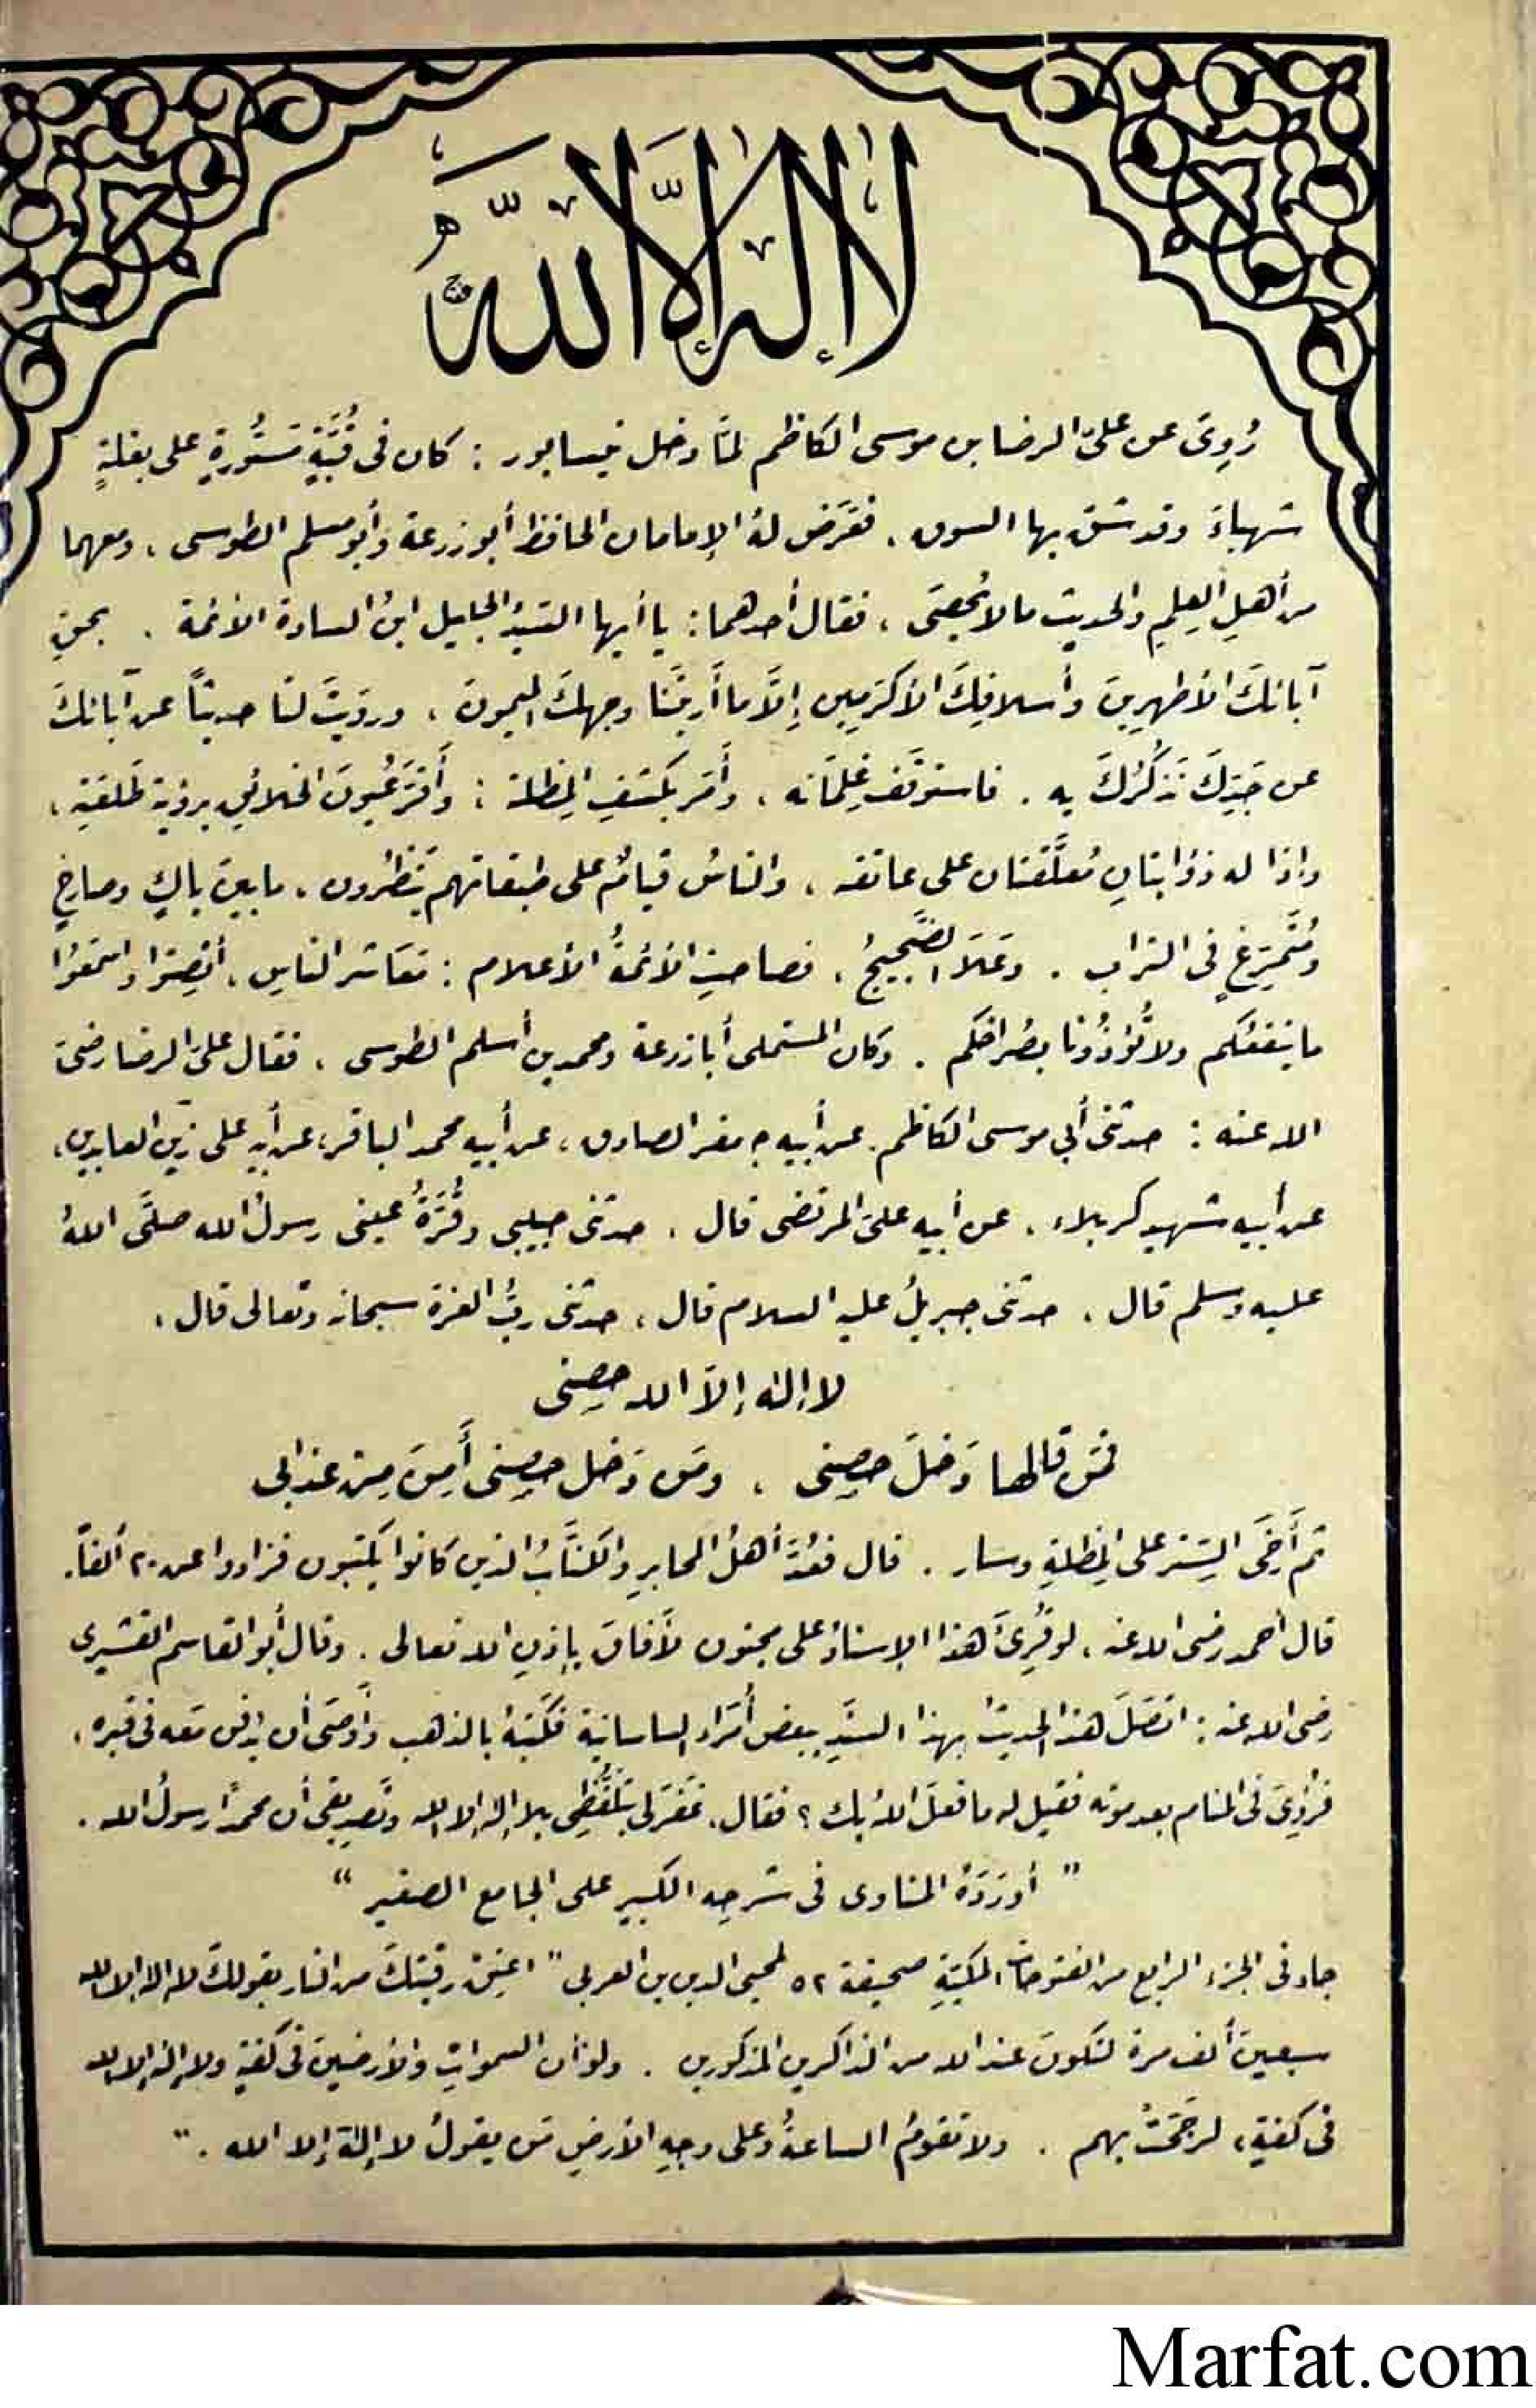 لا إله إلا الله
رُوِيَ عن عليّ الرضا بن موسى الكاظم لمّا دخل نيسابور : كان فى قُبَّةٍ مَستُورةٍ على بغلةٍ
شهباءَ وقد شق بها السوق ، فعَرَض لهُ الإمامان الحافظ أبو زرعة وأبو مسلم الطوسى ، ومعهما
من أهلِ العِلمِ والحديث ما لا يُحصَى ، فقال أحدهما : يا أيها السيّدُ الجليل ابنُ السادة الأئمة . بحقِ
آبائكَ الأطهرِينَ وأسلافِكَ الأكرَمِين إلَّا ما أَرَيتَنا وجهكَ الميمونَ ، ورويتَ لنا حديثاً عن آبائكَ
عن جَدِكَ نَذكُرُكَ به . فاستوقَف غِلمَانه ، وأمَر بكَشفِ المِظلة ؛ وأَقَرَّ عُيونَ الخلائقِ برؤية طَلعَتِهِ ،
وإذا له ذؤابتانِ مُعلَّقتان على عاتقه ، والناسُ قيامٌ على طبقاتهم يَنظُرون ، ما بينَ باكٍ وصارخٍ
ومُتمرِّغٍ فى التراب . وعَلَا الضَّجيجُ ، فصاحتِ الأئمةُ الأعلام : مَعَاشر الناسِ ، أنصِتوا واسمَعُوا
ما ينفَعُكم ولا تُؤذُونا بصُراخكم . وكان المستملى أبا زرعة ومحمد بن أسلم الطوسى ، فقال علىّ الرضا رضىَ
الله عنه : حدثنى أبي موسى الكاظم . عن أبيه جعفر الصادق ، عن أبيه محمد الباقر ، عن أبيه على زين العابدين ،
عن أبيه شهيد كربلاء ، عن أبيه علىّ المرتضى قال ، حدثنى حبيبى وقُرَّةُ عينى رسولُ الله صلَّى اللهُ
عليه وسلم قال ، حدثنى جبريلُ عليه السلام قال ، حدثنى ربُّ العزة سبحانه وتعالى قال ،
لا إله إلاّ الله حِصِنى
فمَن قالها دَخلَ حِصِنى ، ومَن دَخل حِصِنى أَمِنَ مِن عذابى
ثم أَرخَى السِتر على المِظلةِ وسار . قال فعُدَّ أهلُ المحابرِ والكُتَّابُ الذين كانوا يكتبون فزادوا عن ٢٠ ألفاً .
قال أحمد رضى الله عنه ، لو قُرِئَ هذا الإسنادُ على مجنون لأفاقَ بإذنِ الله تعالى . وقال أبو القاسم القشيرى
رضى الله عنه : اتصَلَ هذا الحديثُ بهذا السَّندِ ببعض أُمَراءِ الساسانية فكَتبهُ بالذهب وأوصَى أن يُدفن مَعه فى قبره ،
فرُؤىَ فى المنام بعد موته فقيل له ما فعلَ اللهُ بك ؟ فقال ، غفَرَ لى بتَلفُّظى بلا إله إلا الله وتَصديقى أن محمداً رسولُ الله .
" أورَدَهُ المناوى فى شرحِه الكبيرِ على الجامع الصغير "
جاء فى الجزء الرابع من الفتوحات المكيةِ صحيفة ٥٢ لمحيى الدين بن العربى " اعتِق رقبتكَ من النار بقولكَ لا إله إلا الله
سبعينَ ألف مرة لتكونَ عند الله من الذاكرين المذكورين . ولو أن السموات والأرضينَ فى كفّةٍ ولا إله إلا الله
فى كفةٍ ، لرجَحَتْ بهم . ولا تقومُ الساعةُ وعلى وجهِ الأرضِ مَن يقولُ لا إلهَ إلا الله . "
Marfat.com